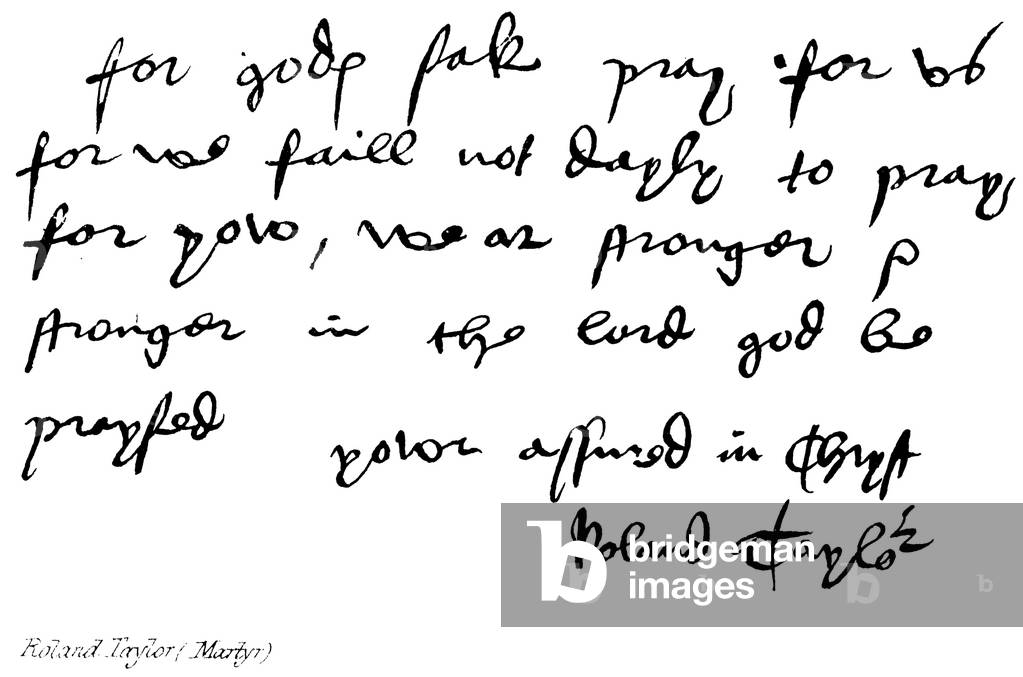 for godes sak pray for vs
for we faill not dayly to pray
for yow, we ar stronger &
stronger in the lord god be
praysed
yowr assured in Chryst
Roland Taylor
bridgeman
images
Roland Taylor (Martyr)